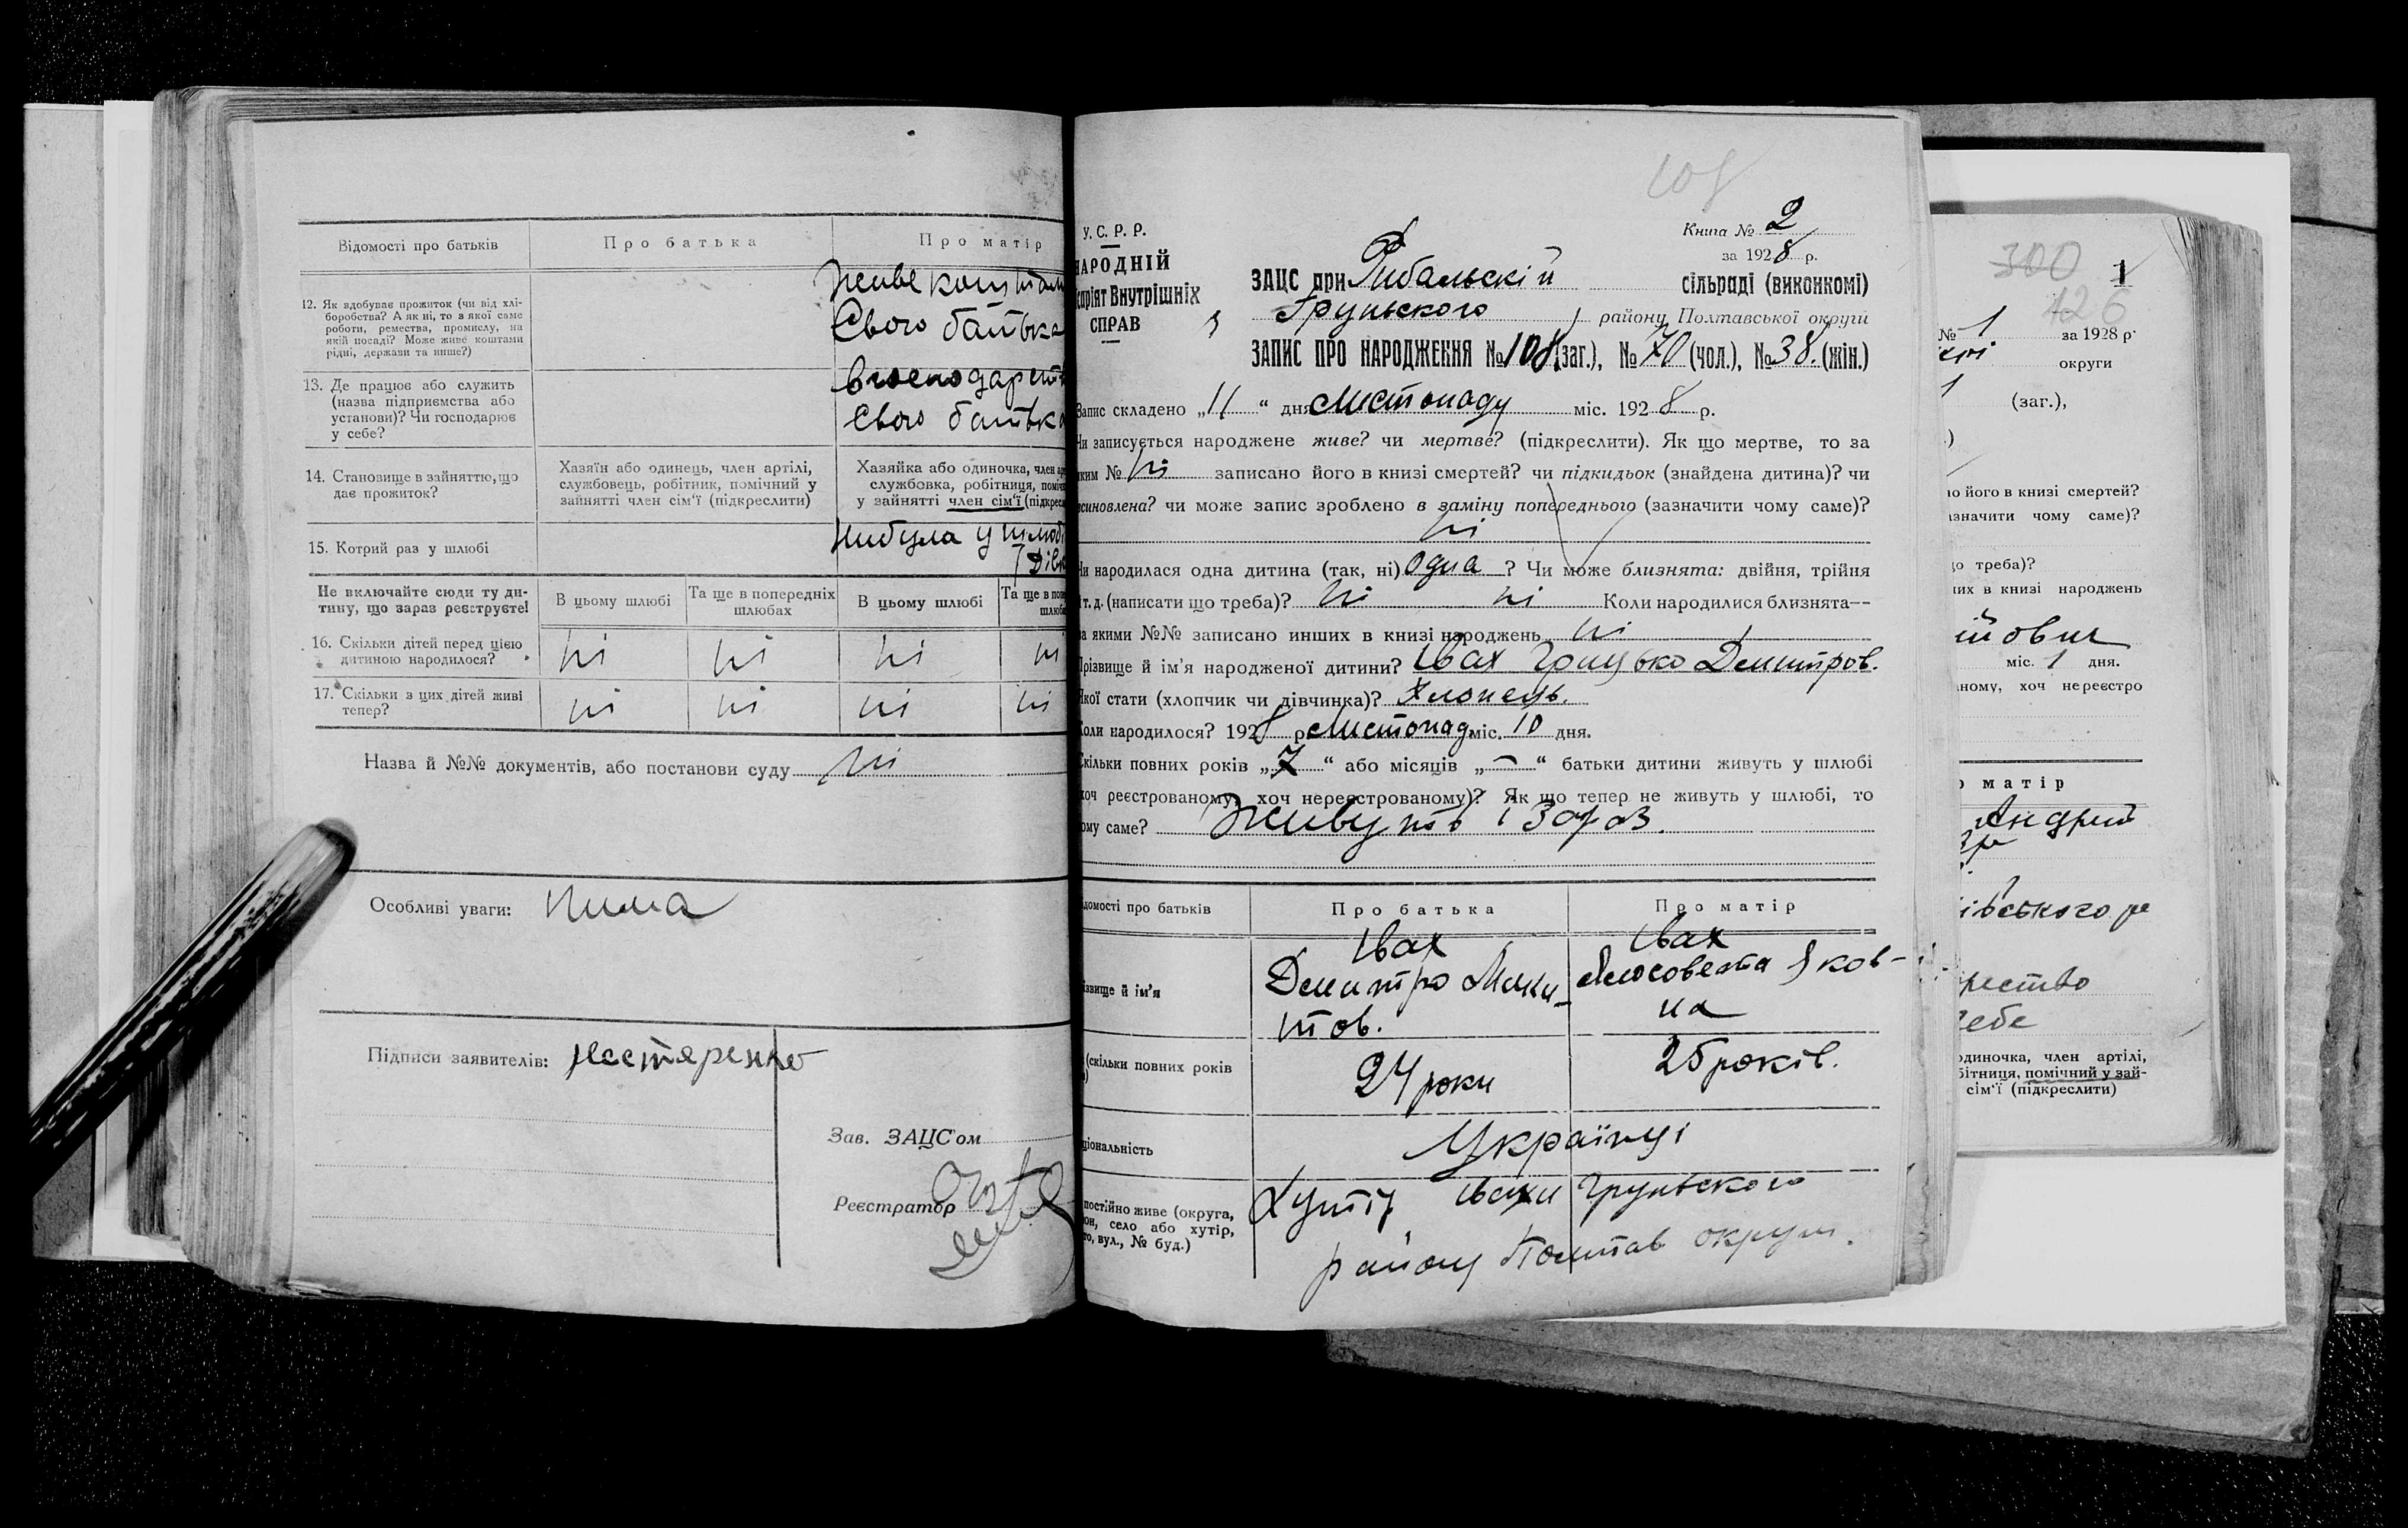 Відомості про батьків
Про батька
Про матір
12. Як здобуває прожиток (чи від хлі-
боробства? А як ні, то з якої саме
роботи, ремества, промислу, на
якій посаді? Може живе коштами
рідні, держави та инше?)
Живе коштами
Свого батька
13. Де працює або служить
(назва підприємства або
установи)? Чи господарює
у себе?
Свого батька
14. Становище в зайняттю, що
дає прожиток?
Хазяїн або одинець, член артілі,
службовець, робітник, помічний у
зайнятті член сім'ї (підкреслити)
Хазяйка або одиночка, член
службовка, робітниця,
у зайнятті член сім'ї
15. Котрий раз у шлюбі
Нибула у шлюбі
Не включайте сюди ту ди-
тину, що зараз реєструєте!
В цьому шлюбі
Та ще в попередніх
шлюбах
В цьому шлюбі
Та ще в
16. Скільки дітей перед цією
дитиною народилося?
ні ні ні ні
17. Скільки з цих дітей живі
тепер?
ні ні ні ні
Назва й №№ документів, або постанови суду ні
Особливі уваги: нима
Підписи заявителів: Нестеренко
Зав. ЗАЦС'ом
Реєстратор
108
У. С. Р. Р.
НАРОДНІЙ
Внутрішніх
СПРАВ
Книга № 2
за 1928 р.
ЗАЦС при Рибальскій сільраді (виконкомі)
Груньского району Полтавської округи
ЗАПИС ПРО НАРОДЖЕННЯ № 108 (заг.), № 70 (чол.), № 38. (жін.)
Запис складено „11“ дня Листопаду міс. 1928 р.
Чи записується народжене живе? чи мертве? (підкреслити). Як що мертве, то за
яким № ні записано його в книзі смертей? чи підкидьок (знайдена дитина)? чи
чи може запис зроблено в заміну попереднього (зазначити чому саме)?
ні
Чи народилася одна дитина (так, ні) одна? Чи може близнята: двійня, трійня
т. д. (написати що треба)? ні ні Коли народилися близнята—
за якими №№ записано инших в книзі народжень ні
Прізвище й ім'я народженої дитини? Івах Грицько Демитров.
Якої стати (хлопчик чи дівчинка)? Хлопець.
Коли народилося? 1928 р. Листопад міс. 10 дня.
Скільки повних років „7“ або місяців „—“ батьки дитини живуть у шлюбі
хоч реєстрованому, хоч нереєстрованому)? Як що тепер не живуть у шлюбі, то
чому саме? Живуть і зараз.
Відомості про батьків
Про батька
Про матір
ім'я
Івах
Демитро Мики-
тов.
Івах
Яков-
на
(скільки повних років
24 роки
25 років.
Українці
постійно живе (округа,
село або хутір,
вул., № буд.)
Хутір Івахи Груньского
району Полтав округи.
300
126
1
№ 1 за 1928 р.
округи
(заг.),
його в книзі смертей?
чому саме)?
треба)?
в книзі народжень
міс. 1 дня.
хоч нереєстро
матір
одиночка, член артілі,
помічний у зай-
сім'ї (підкреслити)